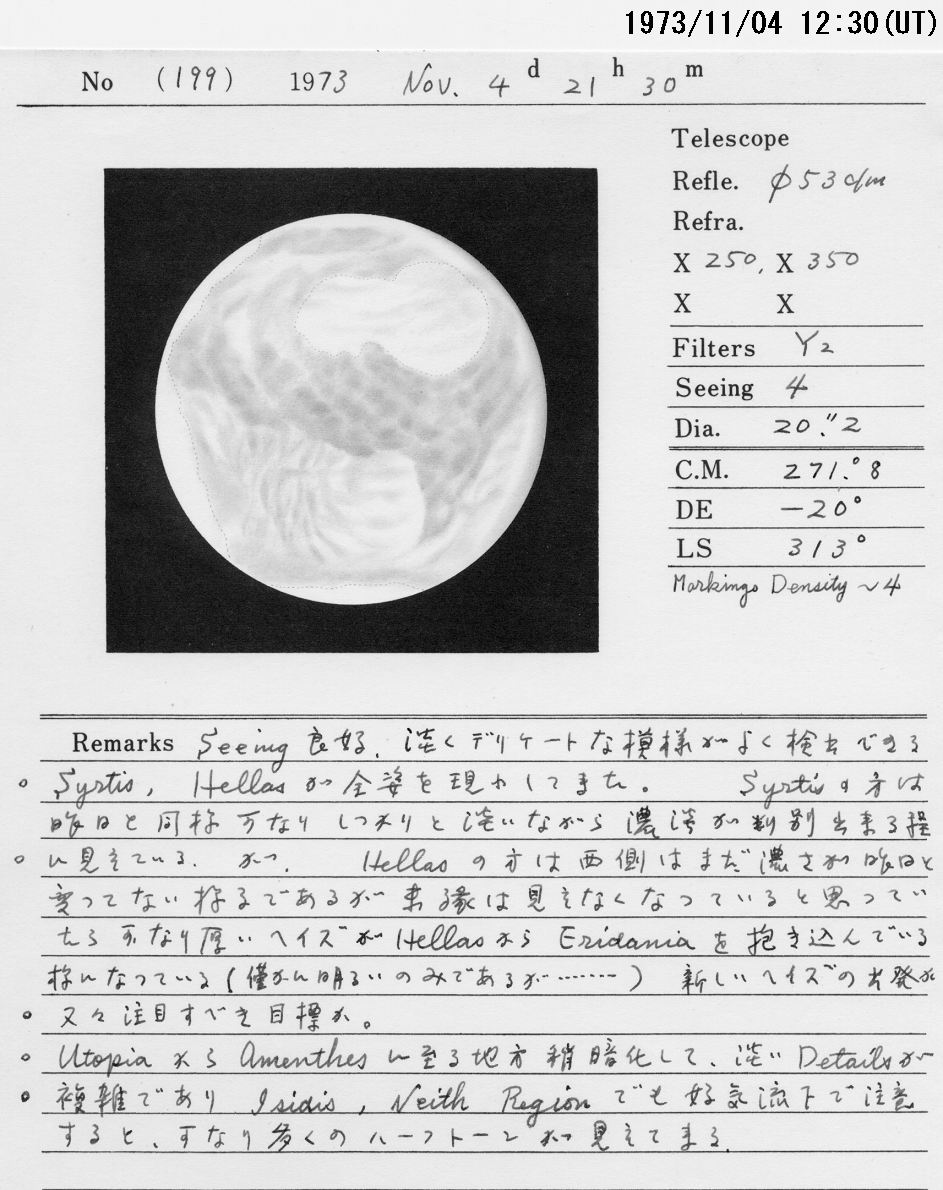 1973/11/04 12:30(UT)
No (199) 1973 Nov. 4 d 21 h 30 m
Telescope
Refle. φ53 c/m
Refra.
X 250, X 350
X X
Filters Y2
Seeing 4
Dia. 20."2
C.M. 271.°8
DE -20°
LS 313°
Markings Density ~4
Remarks Seeing 良好、淡くデリケートな模様がよく検出できる
Syrtis, Hellas が全姿を現わしてきた。 Syrtis の方は
昨日と同様かなりしっかりと淡いながら濃淡が判別出来る程
に見えている. が、 Hellas の方は西側はまだ濃さが昨日と
変ってない様であるが東縁は見えなくなっていると思ってい
たらかなり厚いヘイズが Hellas から Eridania を抱き込んでいる
様になっている (僅かに明るいのみであるが……) 新しいヘイズの出発か
又々注目すべき目標か。
Utopia から Amenthes に至る地方稍暗化して、淡い Details が
複雑であり Isidis, Neith Region でも好気流下で注意
すると、かなり多くのハーフトーンが見えてきる.